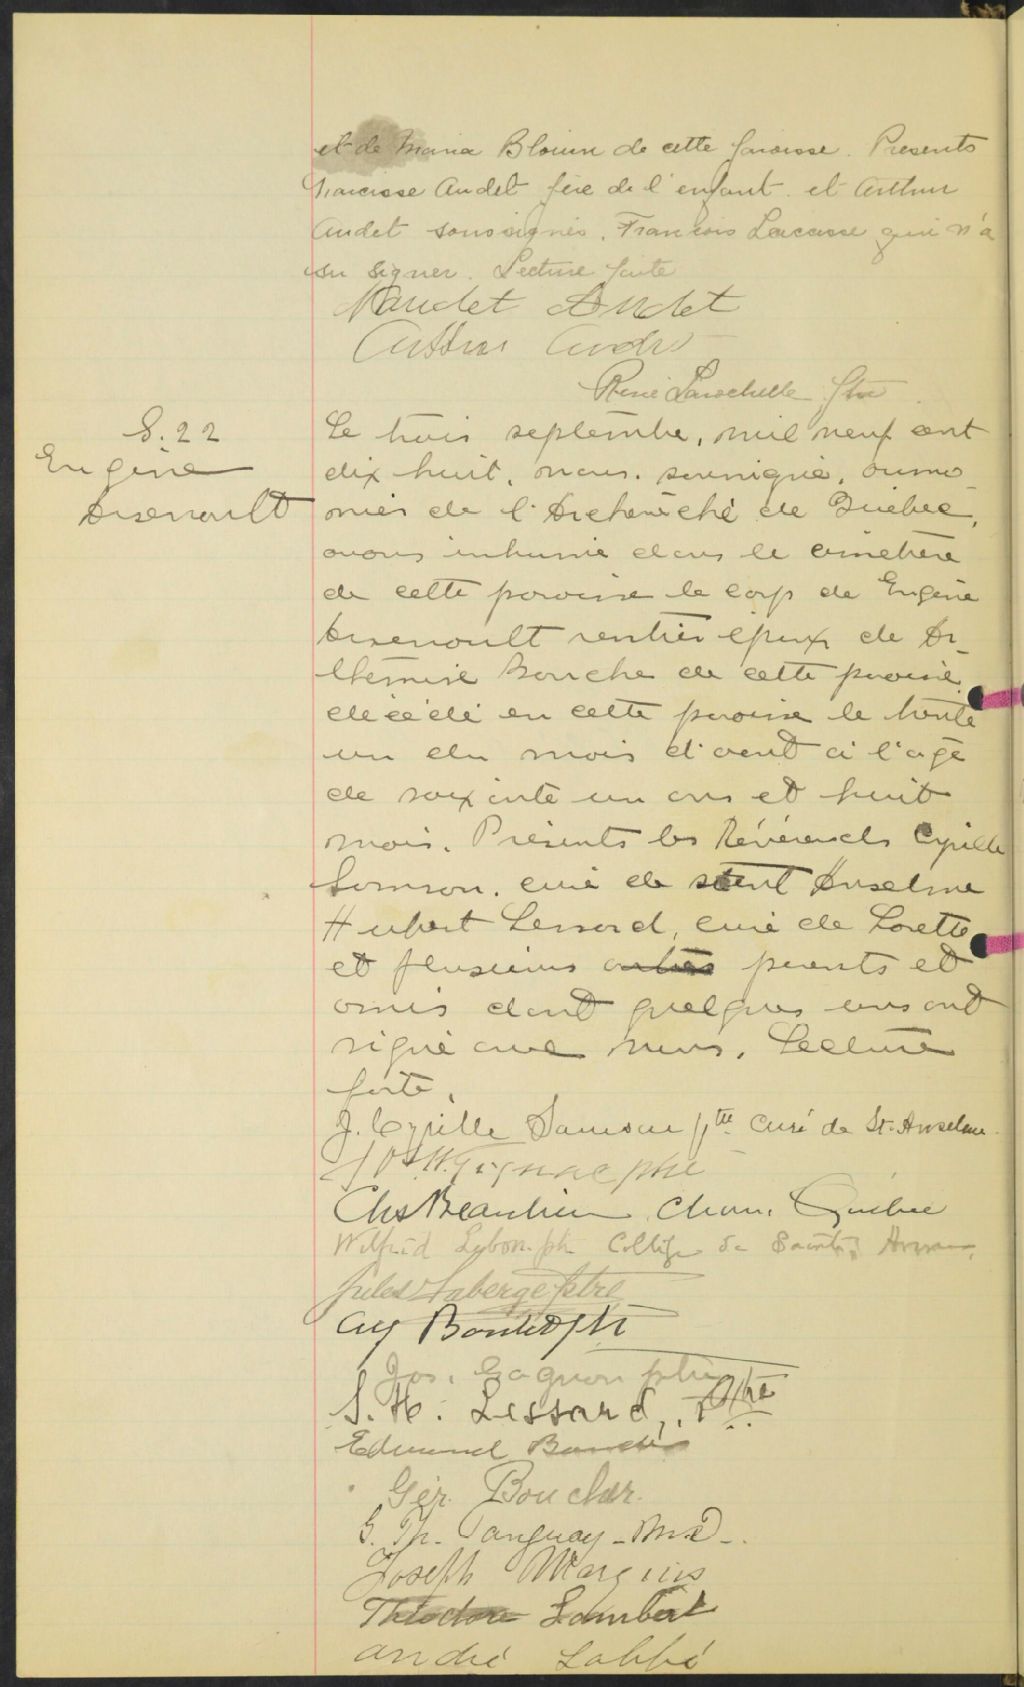 et de Maria Blouin de cette paroisse. Presents
Narcisse Audet père de l'enfant et Arthur
Audet soussignés, François Lacasse qui n'a
su signer. Lecture faite
Naudet Audet
Arthur Audet
René Larochelle Ptre
S. 22
Eugène
Arsenault
Le trois septembre, mil neuf cent
dix huit, nous, soussigné, aumo
nier de l'Archevêché de Québec,
avons inhumé dans le cimetière
de cette paroisse le corps de Eugène
Arsenault rentier époux de Ar-
thémise Bouche de cette paroisse,
décédé en cette paroisse le trente
un du mois d'aout à l'age
de soixante un ans et huit
mois. Présents les Révérends Cyrille
Samson, curé de saint Anselme
Hubert Lessard, curé de Lorette
et plusieurs autres parents et
amis dont quelques uns ont
signé avec nous. Lecture
faite.
J. Cyrille Samson ptre curé de St. Anselme
Gignac ptre
Chs Beaulieu chan. Québec
Wilfrid Lebon ptre Collège de Sainte Anne
Jules Laberge ptre
ptr
Jos. Gagnon ptre
S. H. Lessard, Ptre
Edmund
Gér. Boucher
G. Th. Tanguay M.D.
Joseph Marquis
Théodore Lambert
André Labbé